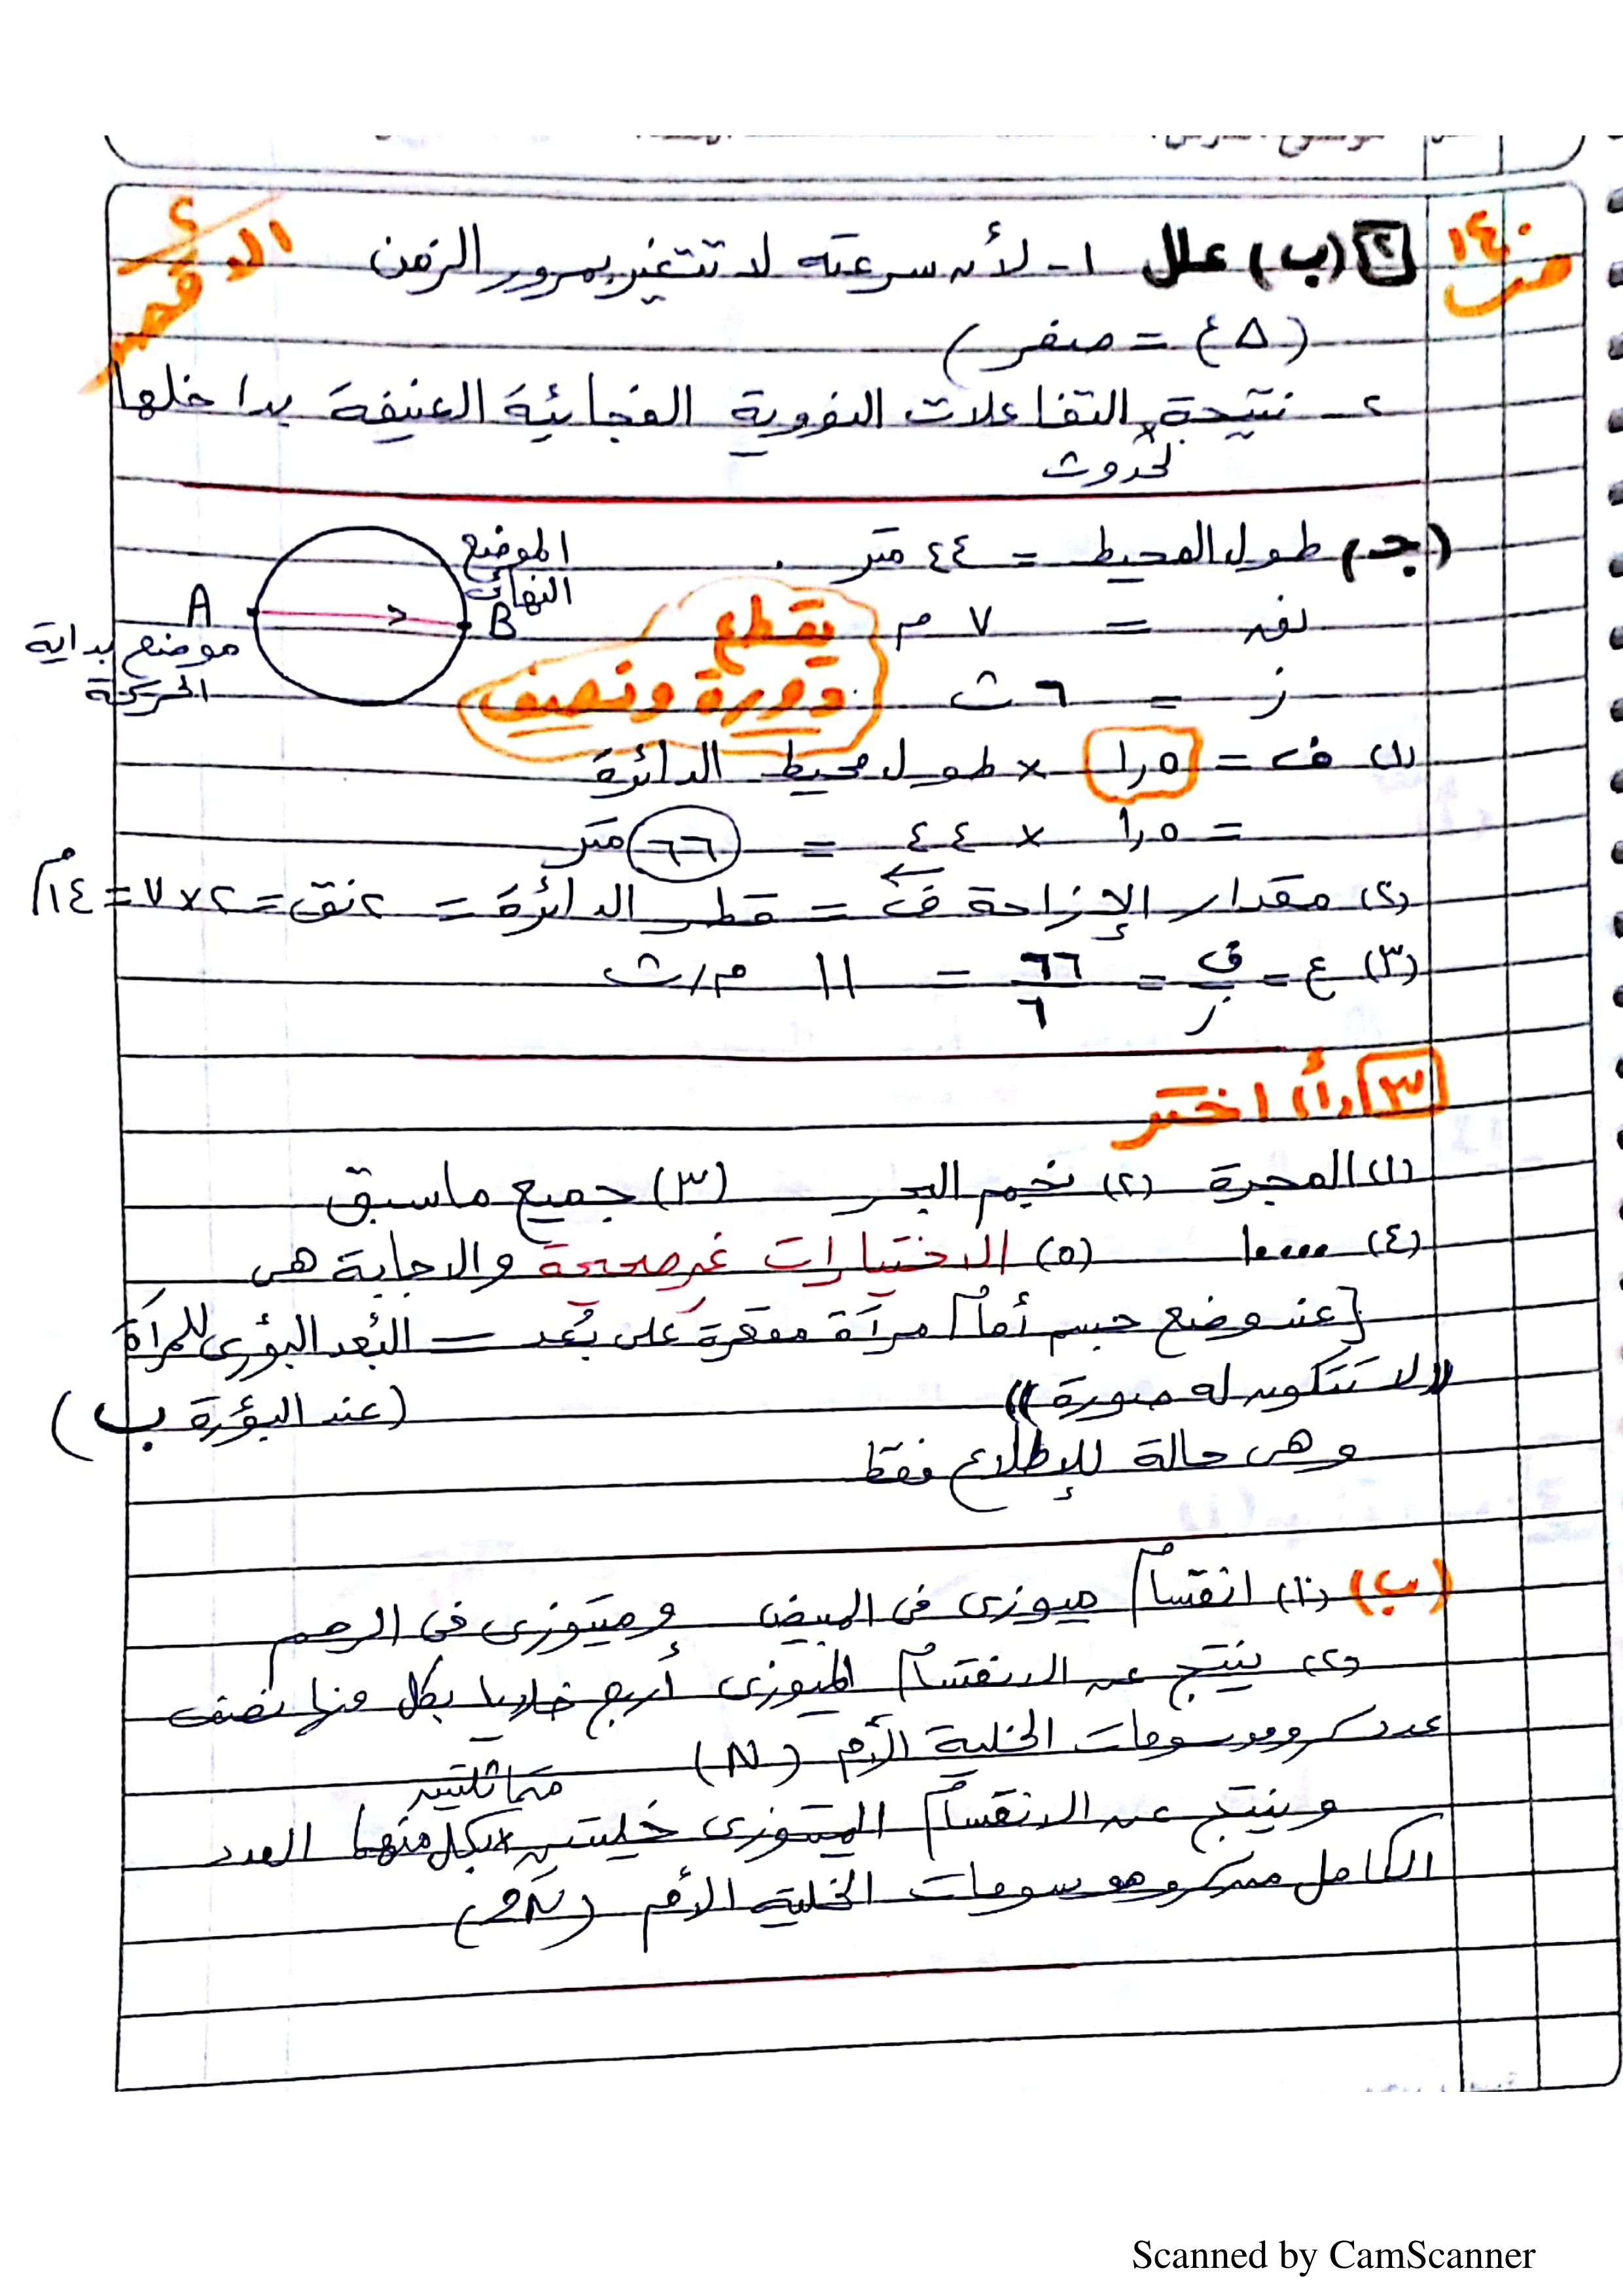 ص ١٤٠
٢ (ب) علل ١- لأن سرعته لا تتغير بمرور الزمن
(Δع = صفر)
٢- نتيجة لحدوث التفاعلات النووية الفجائية العنيفة بداخلها
(جـ) طول المحيط = ٤٤ متر
الموضع النهائى
نق = ٧ م
A B
موضع بداية الحركة
يقطع
دورة ونصف
ز = ٦ ث
(١) ف = ١,٥ × طول محيط الدائرة
= ١,٥ × ٤٤ = ٦٦ متر
(٢) مقدار الإزاحة ف = قطر الدائرة = ٢ نق = ٢ × ٧ = ١٤ م
(٣) ع = ف/ز = ٦٦/٦ = ١١ م/ث
٣ (أ) اختر
(١) المجرة (٢) نجم البحر (٣) جميع ماسبق
(٤) ١٠٠٠٠ (٥) الاختيارات غير صحيحة والاجابة هى
[عند وضع جسم أمام مرآة مقعرة على بُعد = البُعد البؤرى للمرآة
"لا تتكون له صورة" (عند البؤرة ب)
وهى حالة للإطلاع فقط
(ب) (١) انقسام ميوزى فى المبيض وميتوزى فى الرحم
(٢) ينتج عن الانقسام الميوزى أربع خلايا بكل منها نصف
عدد كروموسومات الخلية الأم (N)
وينتج عن الانقسام الميتوزى خليتين متماثلتين بكل منهما العدد
الكامل من كروموسومات الخلية الأم (2N)
Scanned by CamScanner